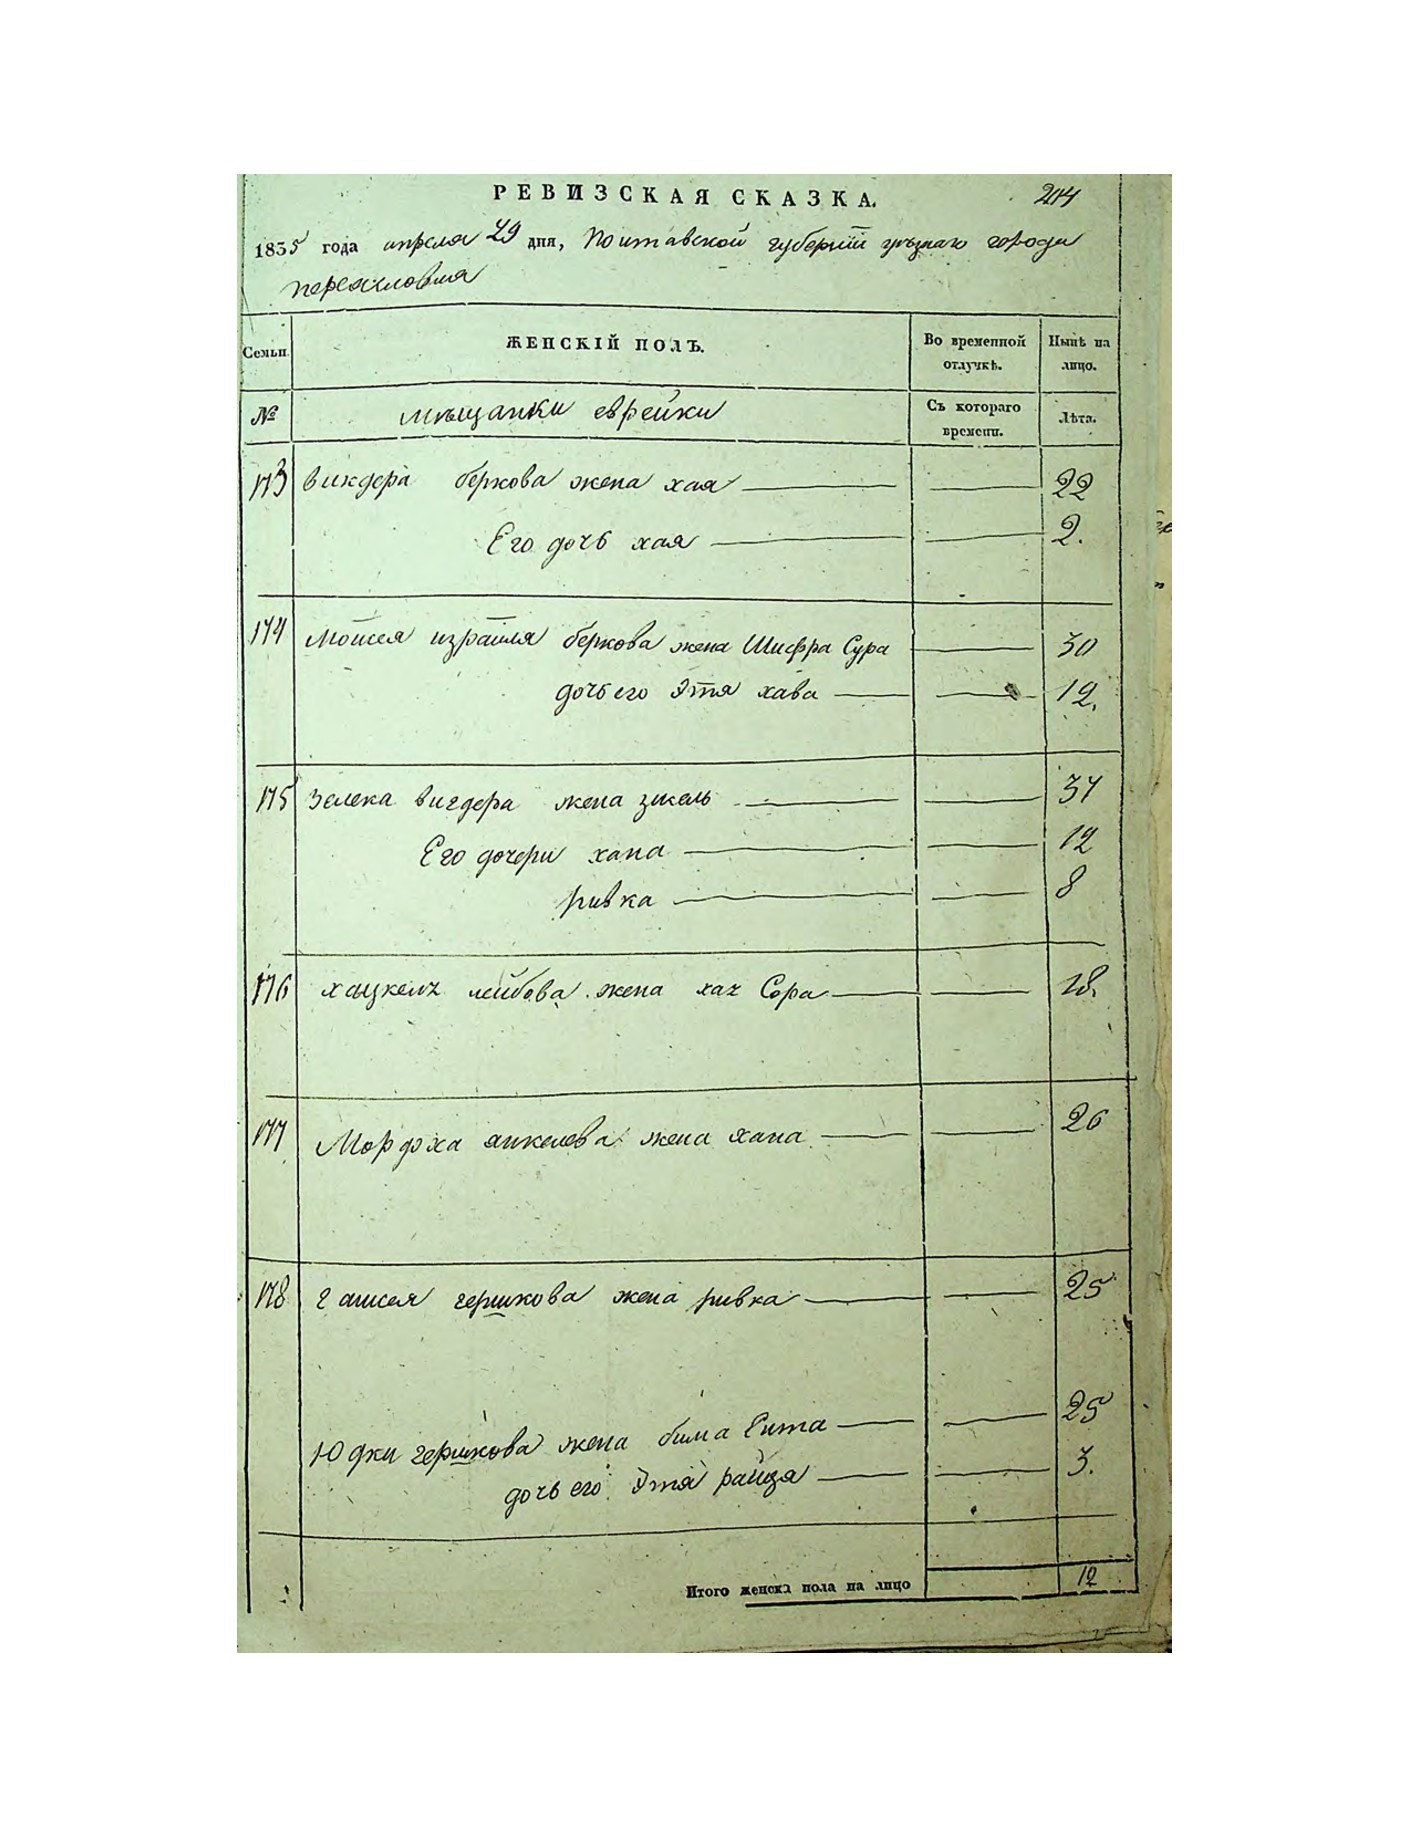 РЕВИЗСКАЯ СКАЗКА. 204
1835 года апреля 29 дня, Полтавской губернїи уезнаго города
переяславля
Семьи. ЖЕНСКІЙ ПОЛЪ. Во временной отлучкѣ. Нынѣ на лицо.
№ мещанки еврейки Съ котораго времени. Лѣта.
173 вигдера беркова жена хая 22
Его дочь хая 2.
174 Мойсея израиля беркова жена Шифра Сура 30
дочь его Этя хава 12.
175 Зелека вигдера жена 37
Его дочери хана 12
ривка 8
176 хацкеля лейбова жена хая Сора 18.
177 Мордоха янкелева жена хана 26
178 гершкова жена ривка 25
Юдки гершкова жена бима Ента 25
дочь его Этя райця 3.
Итого женска пола на лицо 12